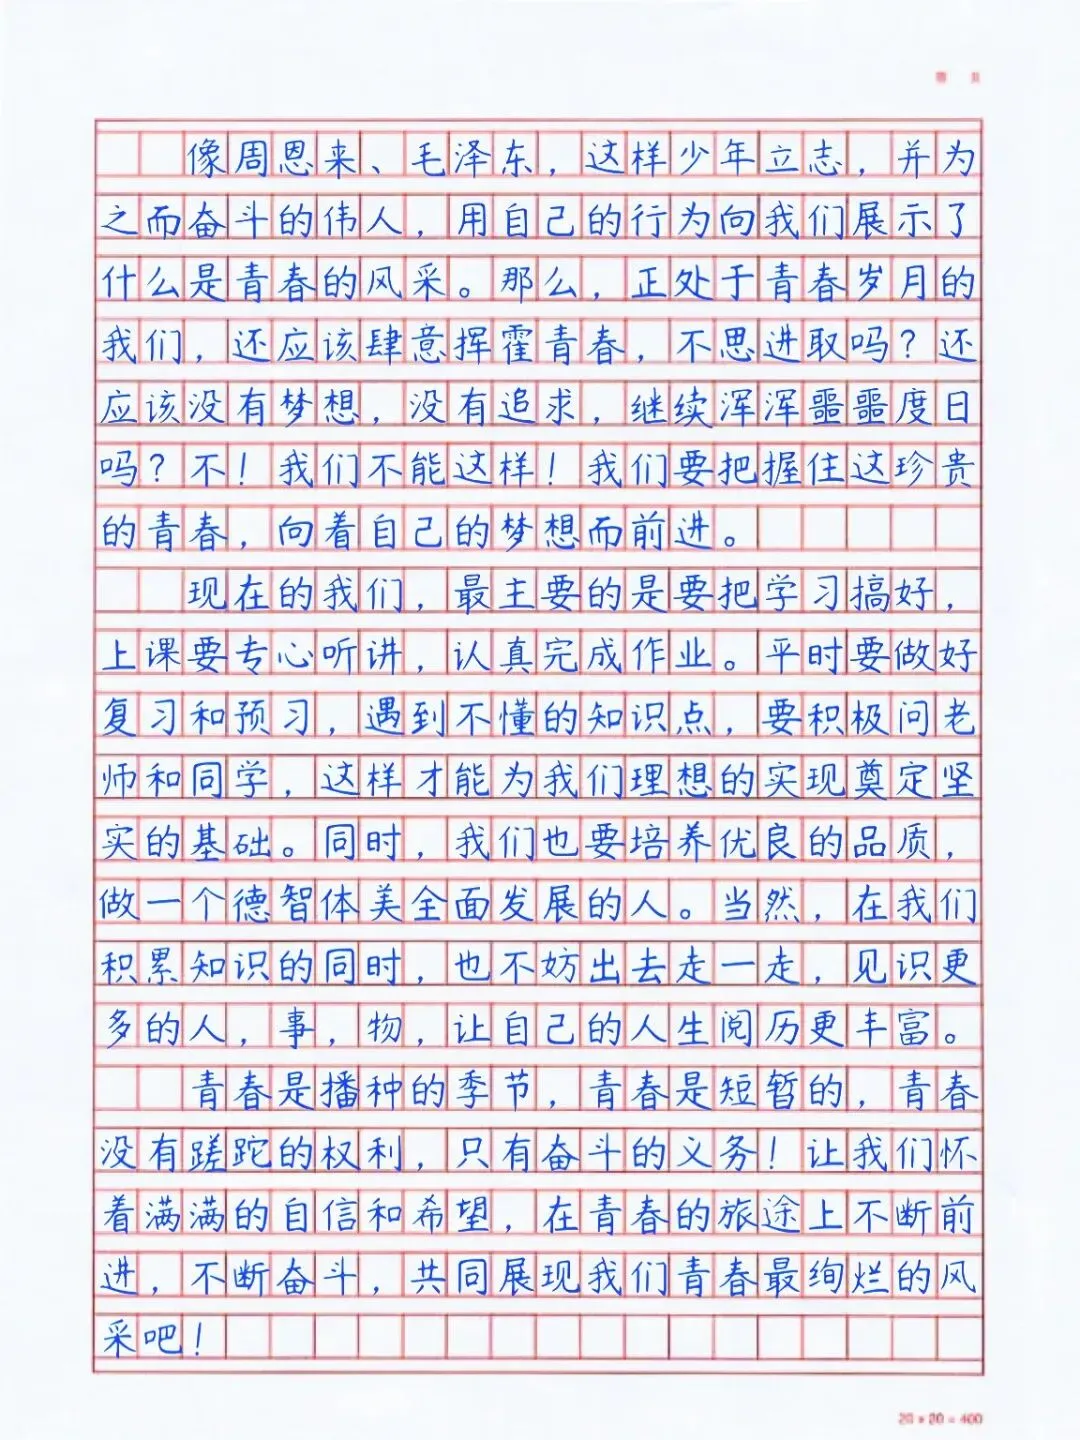 像周恩来、毛泽东，这样少年立志，并为
之而奋斗的伟人，用自己的行为向我们展示了
什么是青春的风采。那么，正处于青春岁月的
我们，还应该肆意挥霍青春，不思进取吗？还
应该没有梦想，没有追求，继续浑浑噩噩度日
吗？不！我们不能这样！我们要把握住这珍贵
的青春，向着自己的梦想而前进。
现在的我们，最主要的是要把学习搞好，
上课要专心听讲，认真完成作业。平时要做好
复习和预习，遇到不懂的知识点，要积极问老
师和同学，这样才能为我们理想的实现奠定坚
实的基础。同时，我们也要培养优良的品质，
做一个德智体美全面发展的人。当然，在我们
积累知识的同时，也不妨出去走一走，见识更
多的人，事，物，让自己的人生阅历更丰富。
青春是播种的季节，青春是短暂的，青春
没有蹉跎的权利，只有奋斗的义务！让我们怀
着满满的自信和希望，在青春的旅途上不断前
进，不断奋斗，共同展现我们青春最绚烂的风
采吧！
20×20=400